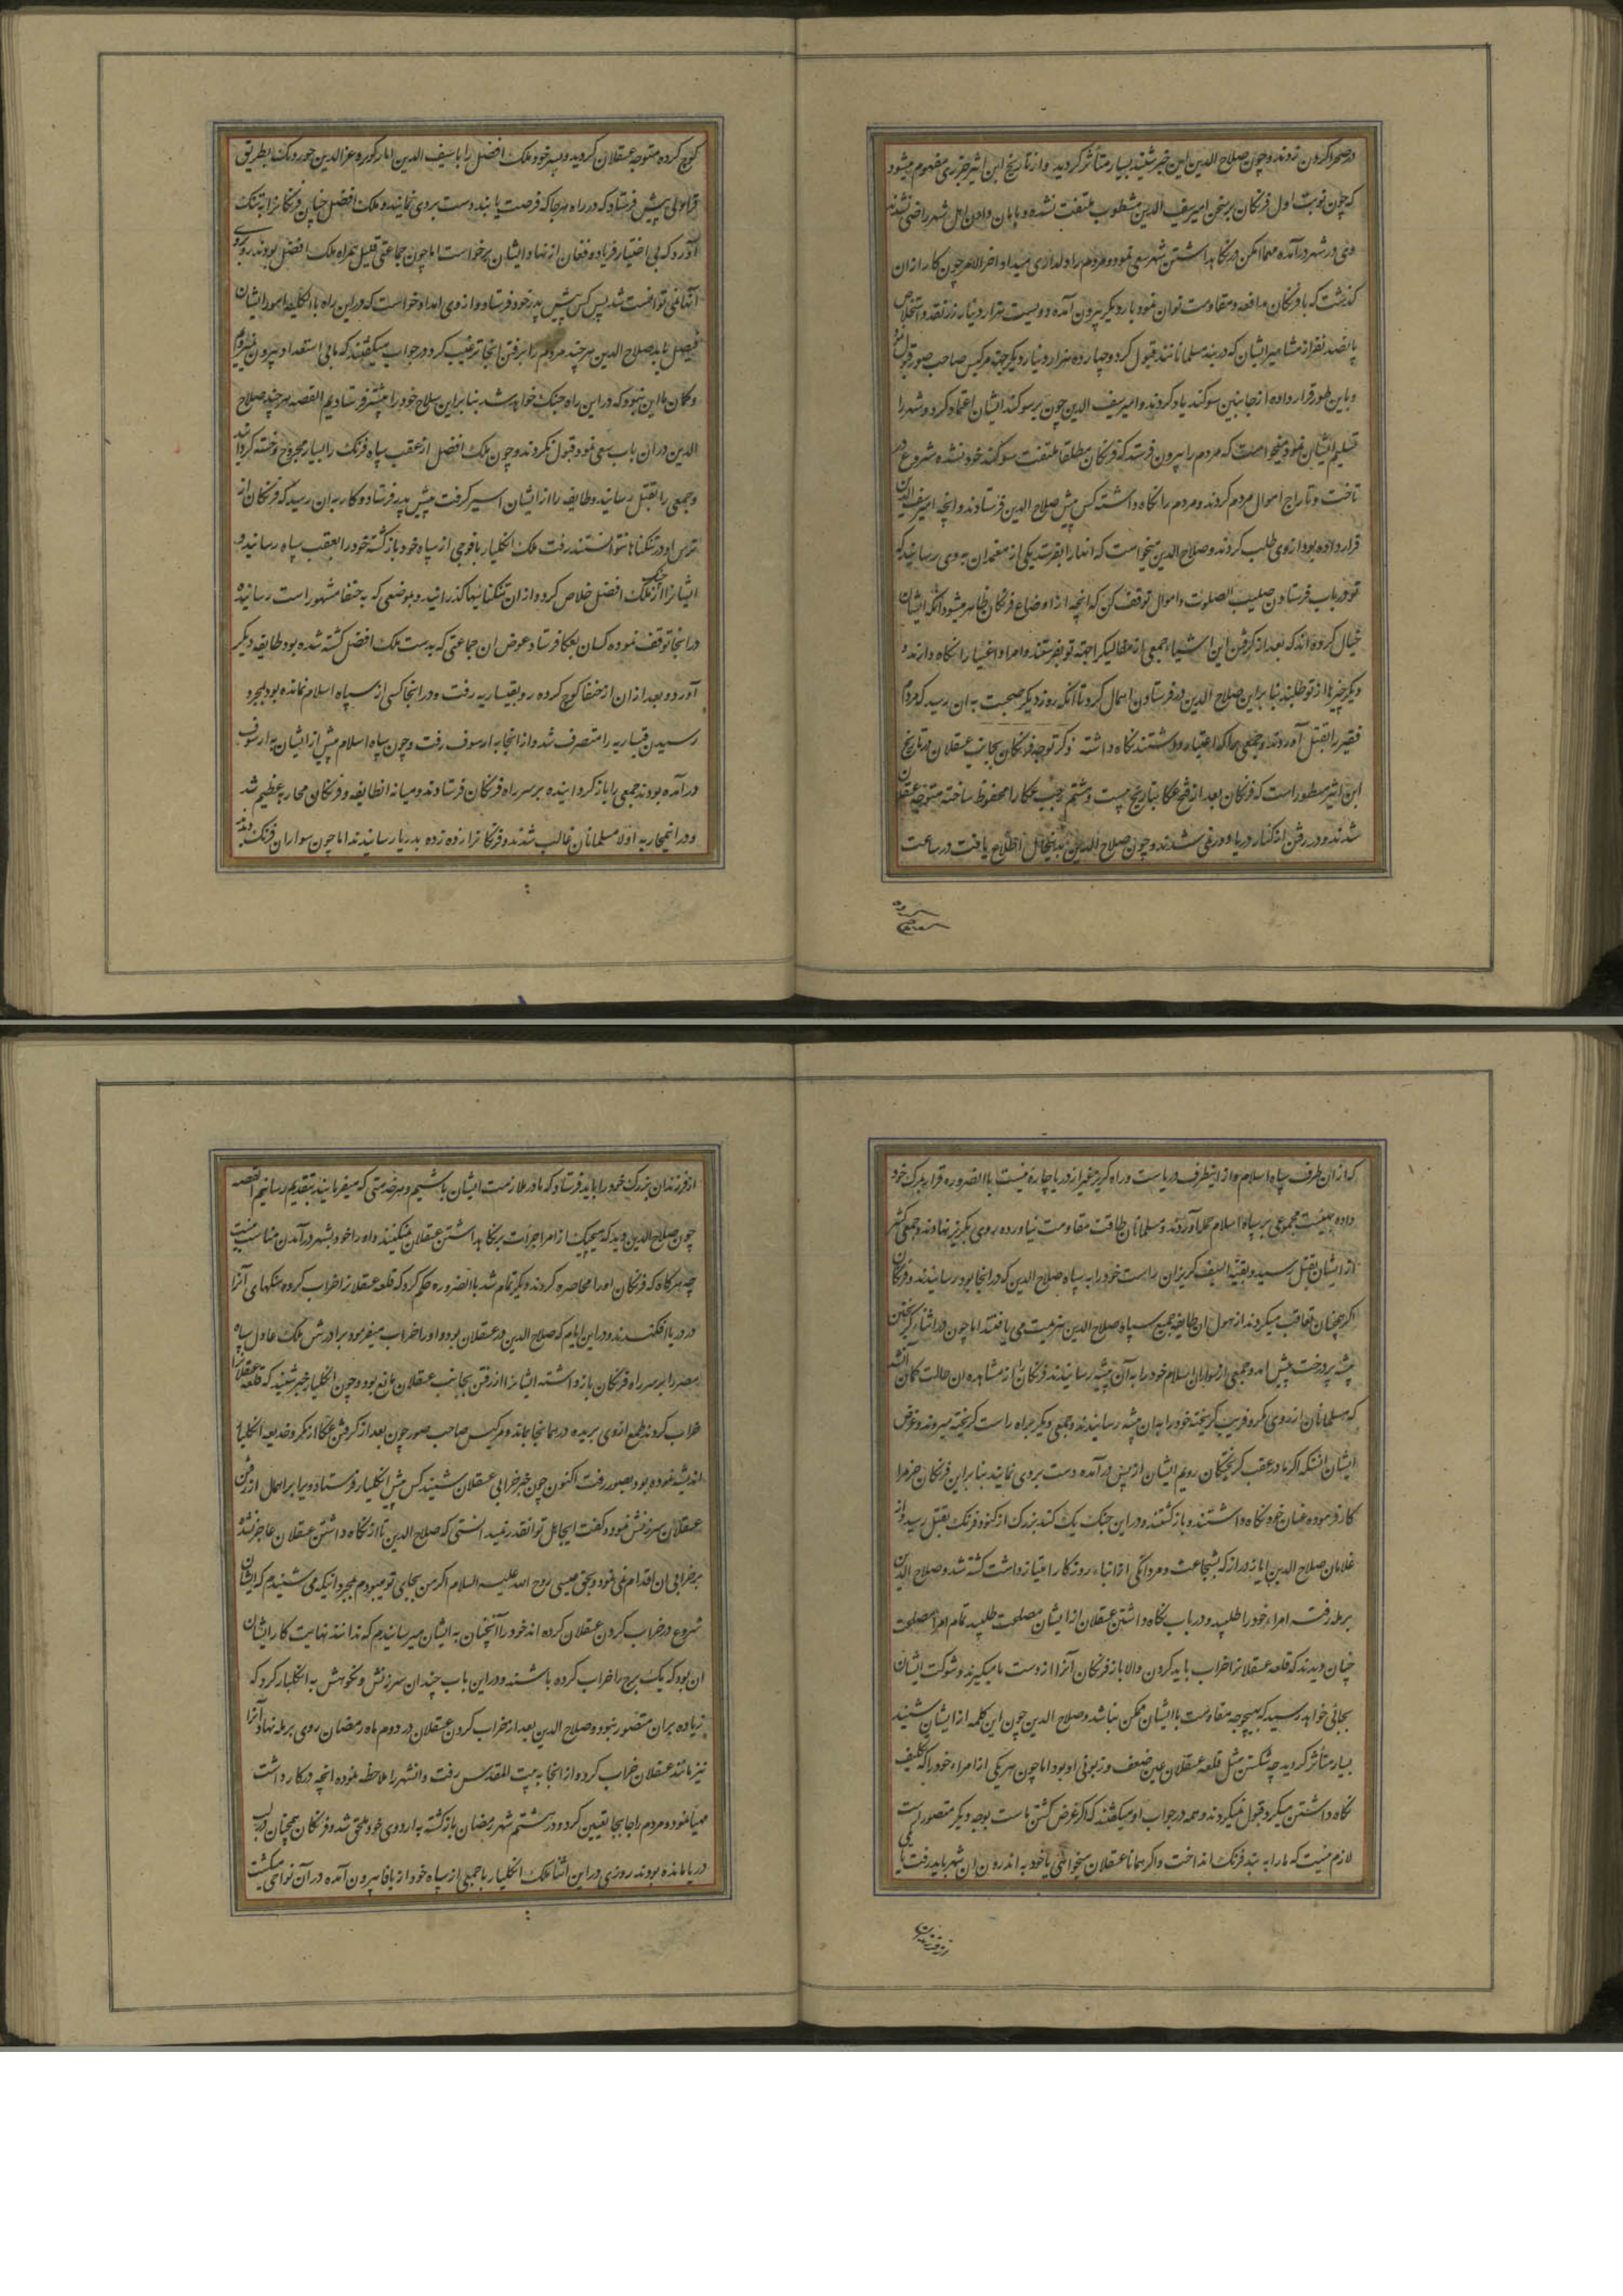 در صحرا کردن زدند و چون صلاح الدین این خبر شنید بسیار متأثر کردید و از تاریخ ابن اثیر جزری مفهوم میشود
که چون نوبت اول فرنکان بر سخن امیر سیف الدین مشطوب ملتفت نشده و بامان دادن اهل شهر راضی نشدند
وی در شهر درآمده مهما امکن در نکاهداشتن شهر سعی نمود و مردم را دلداری میداد و اخر الامر چون کار از ان
کذشت که با فرنکان مدافعه و مقاومت توان نمود بار دیکر بیرون آمده دویست هزار دینار زر نقد و استخلاص
پانصد نفر از مشاهیر ایشان که در بند مسلمانانند قبول کرد و چهارده هزار دینار دیکر جهة مرکیس صاحب صور قبول نمود
و باین طور قرار داده از جانبین سوکند یاد کردند و امیر سیف الدین چون بر سوکند ایشان اعتماد کرد و شهر را
تسلیم ایشان نمود میخواست که مردم را بیرون فرستد که فرنکان مطلقا ملتفت سوکند خود نشده شروع در
تاخت و تاراج اموال مردم کردند و مردم را نکاه داشته کس پیش صلاح الدین فرستادند و انچه امیر سیف الدین
قرار داده بود از وی طلب کردند و صلاح الدین میخواست که انها را بفرستد یکی از معتمدان به وی رسانید که
تو در باب فرستادن صلیب الصلوت و اموال توقف کن که انچه از اوضاع فرنکان ظاهر میشود انکه ایشان
خیال کرده اند که بعد از کرفتن این اشیاء جمعی از ممالیک را جهة تو بفرستند و امرا و اغنیا را نکاه دارند و
دیکر چیزها از تو طلبند بنا براین صلاح الدین در فرستادن اهمال کرد تا انکه روز دیکر صحبت به ان رسید که مردم
فقیر را بقتل آوردند و جمعی را که اعتبار داشتند نکاه داشته ذکر توجه فرنکان بجانب عسقلان در تاریخ
ابن اثیر مسطور است که فرنکان بعد از فتح عکا بتاریخ بیست و هشتم رجب عکا را محفوظ ساخته متوجه عسقلان
شدند و در رفتن از کنار دریا دور نمی شدند و چون صلاح الدین بر اینحال اطلاع یافت در ساعت
کوچ کرده متوجه عسقلان کردید و پسر خود ملک افضل را با سیف الدین ایازکوز و عزالدین جوردیک بطریق
قراولی پیش فرستاد که در راه هرجا که فرصت یابند دست بردی نمایند و ملک افضل چنان فرنکانرا به تنک
آورد که بی اختیار فریاد و فغان از نهاد ایشان برخواست اما چون جماعتی قلیل همراه ملک افضل بودند روبروی
آنها نمی توانست شد پس کس پیش پدر خود فرستاد و از وی امداد خواست که در این راه بالکلیه امور ایشان
فیصل یابد صلاح الدین هرچند مردم را برفتن انجا ترغیب کرد در جواب میکفتند که ما بی استعداد بیرون
و کمان ما این نبود که در این راه جنک خواهد شد بنا براین سلاح خود را پیشتر فرستادیم القصه هرچند صلاح
الدین در ان باب سعی نمود قبول نکردند و چون ملک افضل از عقب سپاه فرنک را بسیار مجروح و خسته کردانید
و جمعی را بقتل رسانید و طایفه را از ایشان اسیر کرفت پیش پدر فرستاد و کار به ان رسید که فرنکان از
ترس او در تنکناها نتوانستند رفت ملک انکلیار با فوجی از سپاه خود بازکشته خود را بعقب سپاه رسانید و
ایشانرا از جنک ملک افضل خلاص کرد و از ان تنکنائیها کذرانید و بموضعی که به حنفا مشهور است رسانید و
در انجا توقف نموده کسان بعکا فرستاد و عوض ان جماعتی که بدست ملک افضل کشته شده بود طایفه دیکر
آورد و بعد از ان از حنفا کوچ کرده رو بقیساریه رفت و در انجا کسی از سپاه اسلام نمانده بود بمجرد
رسیدن قیساریه را متصرف شد و از انجا به ارسوف رفت و چون سپاه اسلام پیش از ایشان به ارسوف
درآمده بودند جمعی را باز کردانیده بر سر راه فرنکان فرستادند و میانه انطایفه و فرنکان محاربه عظیم شد
و در انمحاربه اولا مسلمانان غالب شدند و فرنکانرا زده زده به دریا رسانیدند اما چون سواران فرنک دیدند
که از ان طرف سپاه اسلام و از اینطرف دریاست و راه کریز غیر از دریا چاره نیست بالضروره قرار بمرک خود
داده بهیئت مجموعی بر سپاه اسلام حمله آوردند و مسلمانان طاقت مقاومت نیاورده روی بکریز نهادند و جمعی کثیر
از ایشان بقتل رسید و بقیة السیف کریزان راست خود را به سپاه صلاح الدین که در انجا بود رسانیدند و فرنکان
اکر همچنان تعاقب میکردند از هول ان طایفه جمیع سپاه صلاح الدین هزیمت می یافتند اما چون در اثناء کریختن
پشه پر درخت پیش امد و جمعی از سواران اسلام خود را به آن پشه رسانیدند فرنکان را از مشاهده ان حالت کمان آنشد
که مسلمانان از روی مکر و فریب کریخته خود را بدان پشه رسانیدند و جمعی دیکر براه راست کریخته میروند و غرض
ایشان انستکه اکر ما در عقب کریختکان رویم ایشان از پس درآمده دست بردی نمایند بنا براین فرنکان حزم را
کار فرموده عنان خود نکاه داشتند و بازکشتند و در این جنک یک کند بزرک از کنود فرنک بقتل رسید و از
غلامان صلاح الدین ایاز دراز که بشجاعت و مردانکی از ابناء روزکار امتیاز داشت کشته شد و صلاح الدین
برمله رفت امراء خود را طلبید و در باب نکاه داشتن عسقلان از ایشان مصلحت طلبید تمام امرا مصلحت
چنان دیدند که قلعه عسقلانرا خراب باید کردن والا باز فرنکان آنرا از دست ما میکیرند و شوکت ایشان
بجائی خواهد رسید که بهیچوجه مقاومت با ایشان ممکن نباشد و صلاح الدین چون این کلمه از ایشان شنید
بسیار متأثر کردید چه شکستن مثل قلعه عسقلان عین ضعف و زبونی او بود اما چون هریکی از امراء خود را که تکلیف
نکاه داشتن میکرد قبول نمیکردند و همه در جواب او میکفتند که اکر غرض کشتن ماست بوجه دیکر متصور است
لازم نیست که ما را به بند فرنک انداخت و اکر همانا عسقلان میخواهی یا خود به اندرون ان شهر باید رفت یا یکی
از فرزندان بزرک خود را باید فرستاد که ما در ملازمت ایشان باشیم و هر خدمتی که میفرمایند بتقدیم رسانیم القصه
چون صلاح الدین دید که هیچیک از امرا جرات بر نکاهداشتن عسقلان نمیکنند و او را خود بشهر درآمدن مناسب نیست
چه هرکاه که فرنکان او را محاصره کردند دیکر تمام شد بالضروره حکم کرد که قلعه عسقلانرا خراب کرده سنکهای آنرا
در دریا افکندند و در این ایام که صلاح الدین در عسقلان بود و او را خراب میفرمود برادرش ملک عادل سپاه
مصر را بر سر راه فرنکان باز داشته ایشانرا از رفتن بجانب عسقلان مانع بود و چون انکلیار خبر شنید که قلعه عسقلانرا
خراب کردند طمع از وی بریده در همانجا بماند و مرکیس صاحب صور چون بعد از کرفتن عکا از مکر و خدیعه انکلیار
اندیشه نموده بود بصور رفت اکنون چون خبر خرابی عسقلان شنید کس پیش انکلیار فرستاد و ویرا بر اهمال از رفتن
عسقلان سرزنش نمود و کفت ایجاهل تو انقدر نمیدانستی که صلاح الدین تا از نکاه داشتن عسقلان عاجز نشد
بر خرابی ان اقدام نمی نمود و بحق عیسی روح الله علیه السلام اکر من بجای تو میبودم بمجرد انیکه می شنیدم که ایشان
شروع در خراب کردن عسقلان کرده اند خود را آنچنان به ایشان میرسانیدم که ندانند نهایت کار ایشان
ان بود که یک برج را خراب کرده باشند و در این باب چندان سرزنش و نکوهش به انکلیار کرد که
زیاده بران متصور نبود و صلاح الدین بعد از خراب کردن عسقلان در دوم ماه رمضان روی برمله نهاد و آنرا
نیز مانند عسقلان خراب کرد و از انجا به بیت المقدس رفت و انشهر را ملاحظه نموده انچه در کار داشت
مهیا نمود و مردم را جابجا تعیین کرد و در هشتم شهر رمضان بازکشته به اردوی خود ملحق شد و فرنکان همچنان در لب
دریا مانده بودند روزی در این اثنا ملک انکلیار با جمعی از سپاه خود از یافا بیرون آمده در آن نواحی میکشت